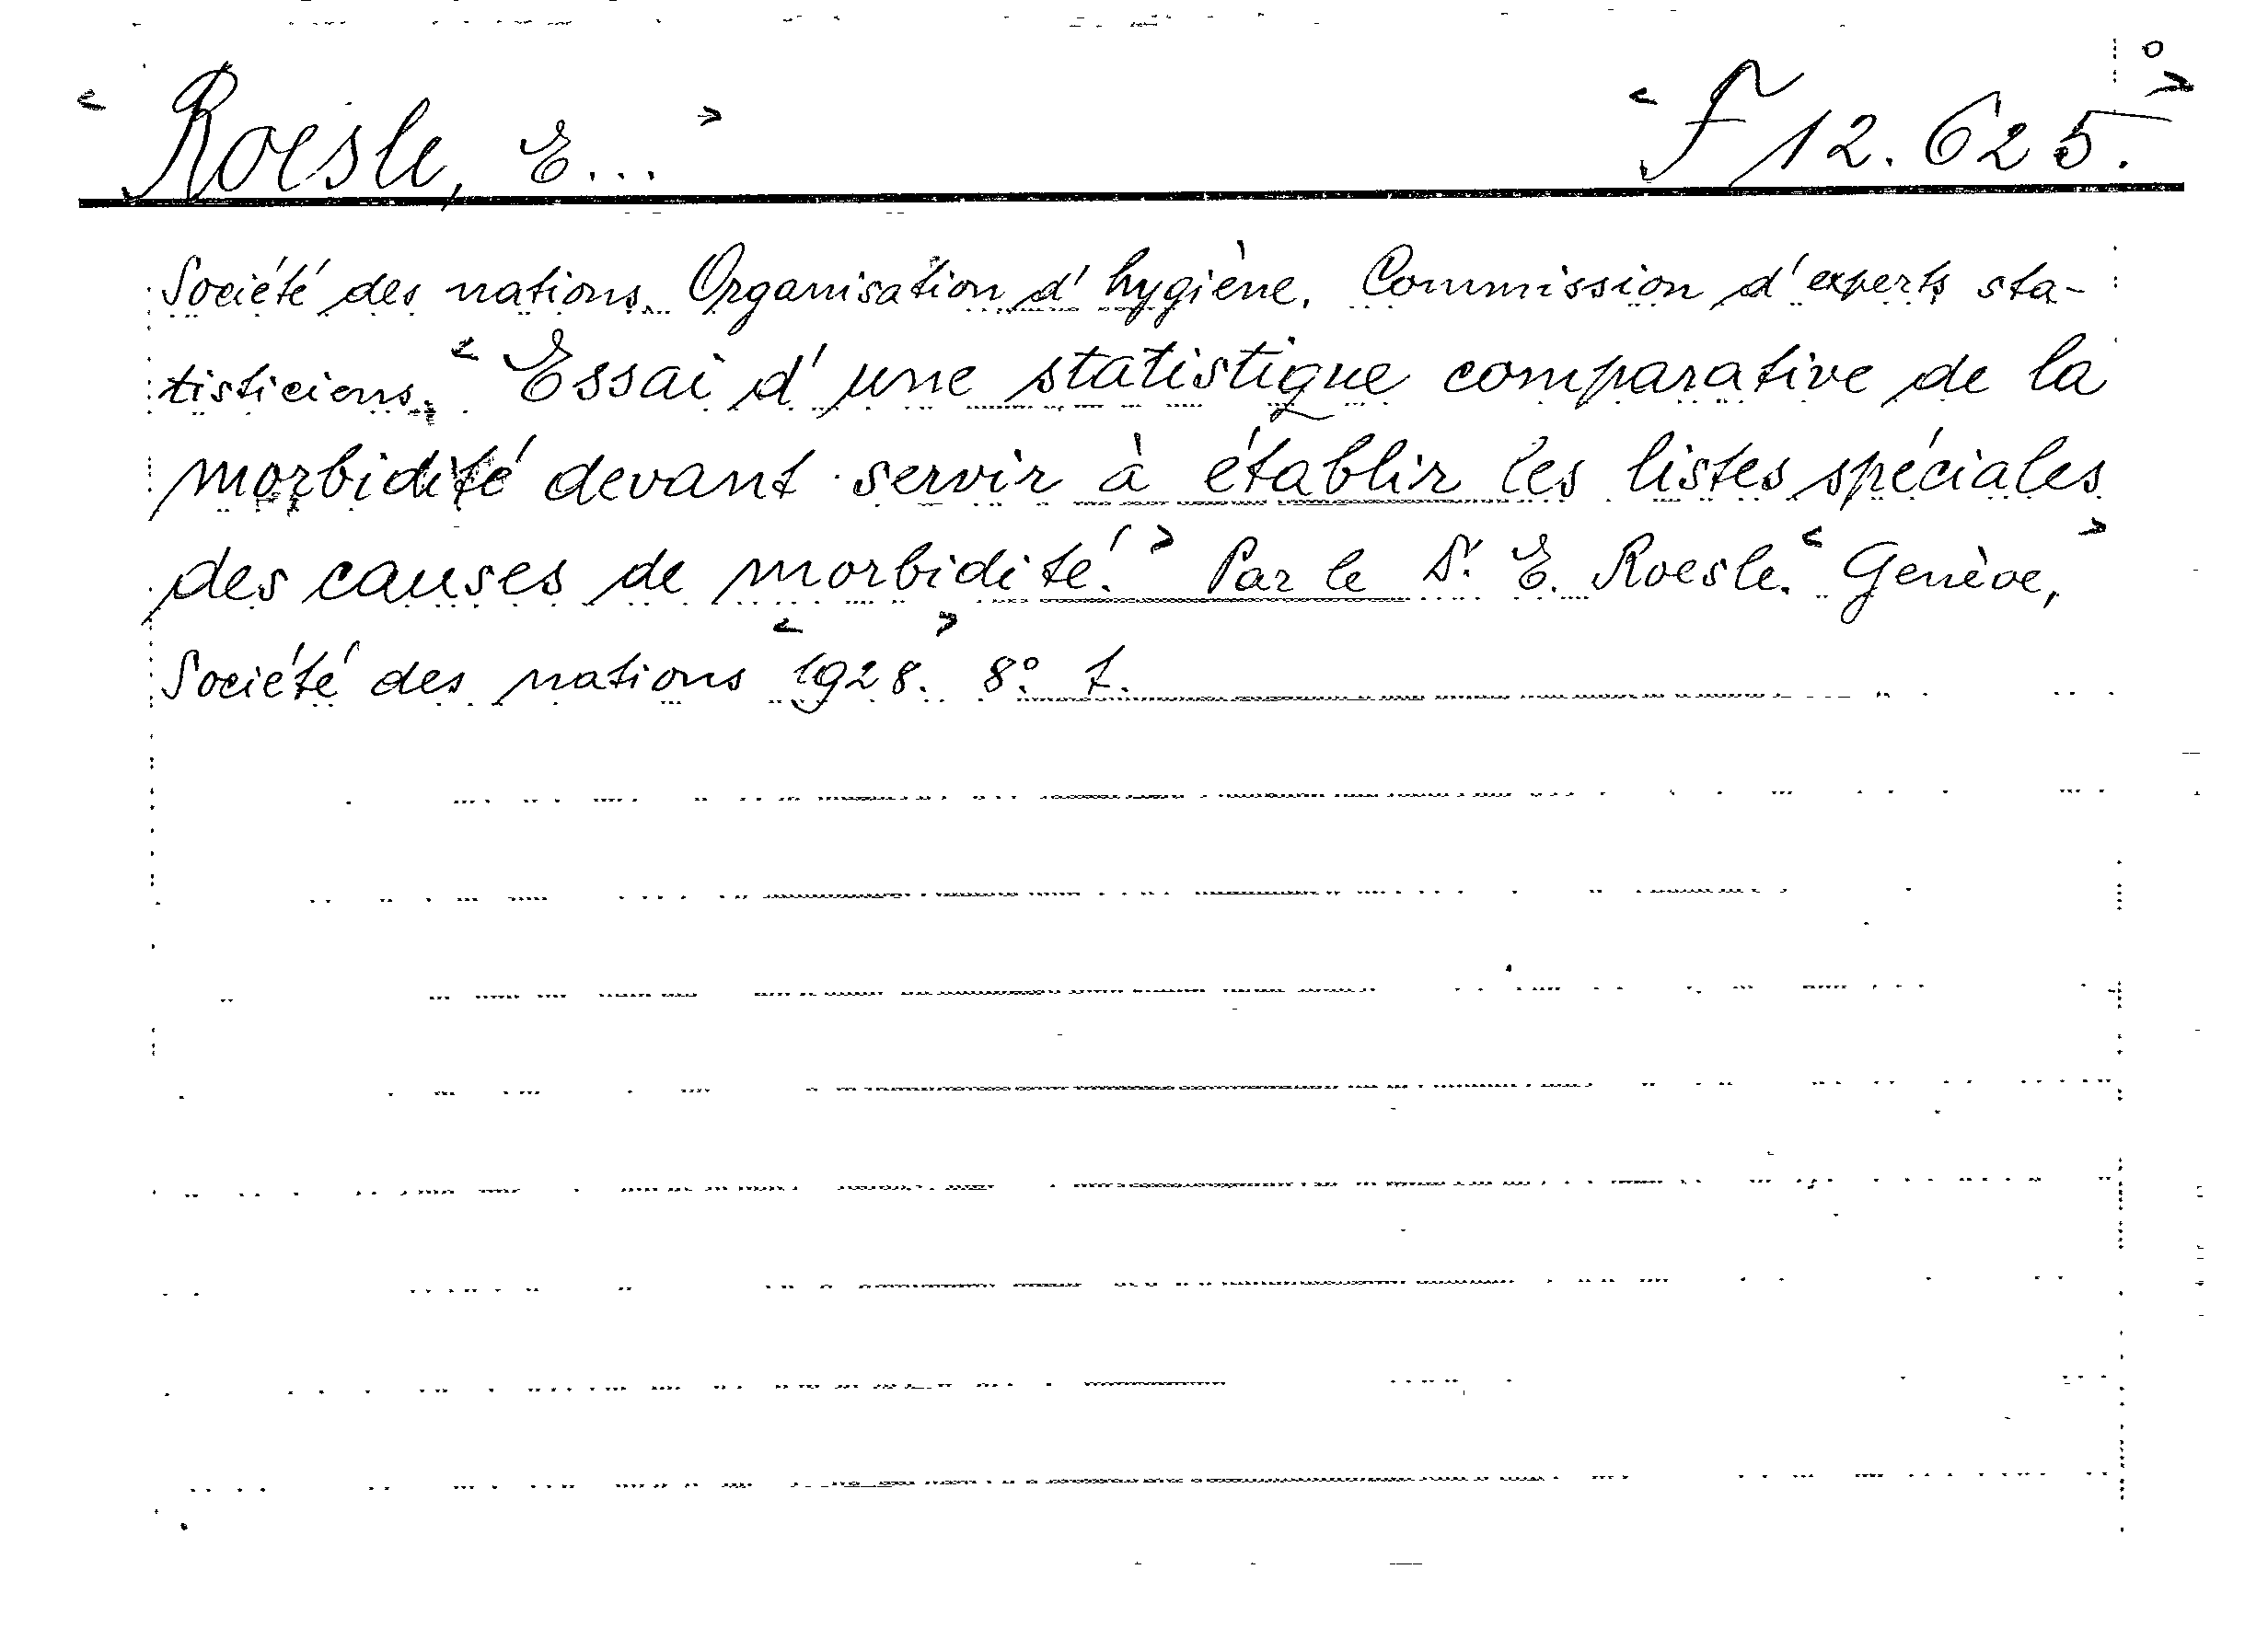 < Roesle, E... > < F 12.625.° >
Société des nations. Organisation d'hygiène. Commission d'experts sta-
tisticiens. < Essai d'une statistique comparative de la
morbidité devant servir à établir les listes spéciales
des causes de morbidité. > Par le Dr. E. Roesle. < Genève, >
Société des nations < 1928. > 8°. f.